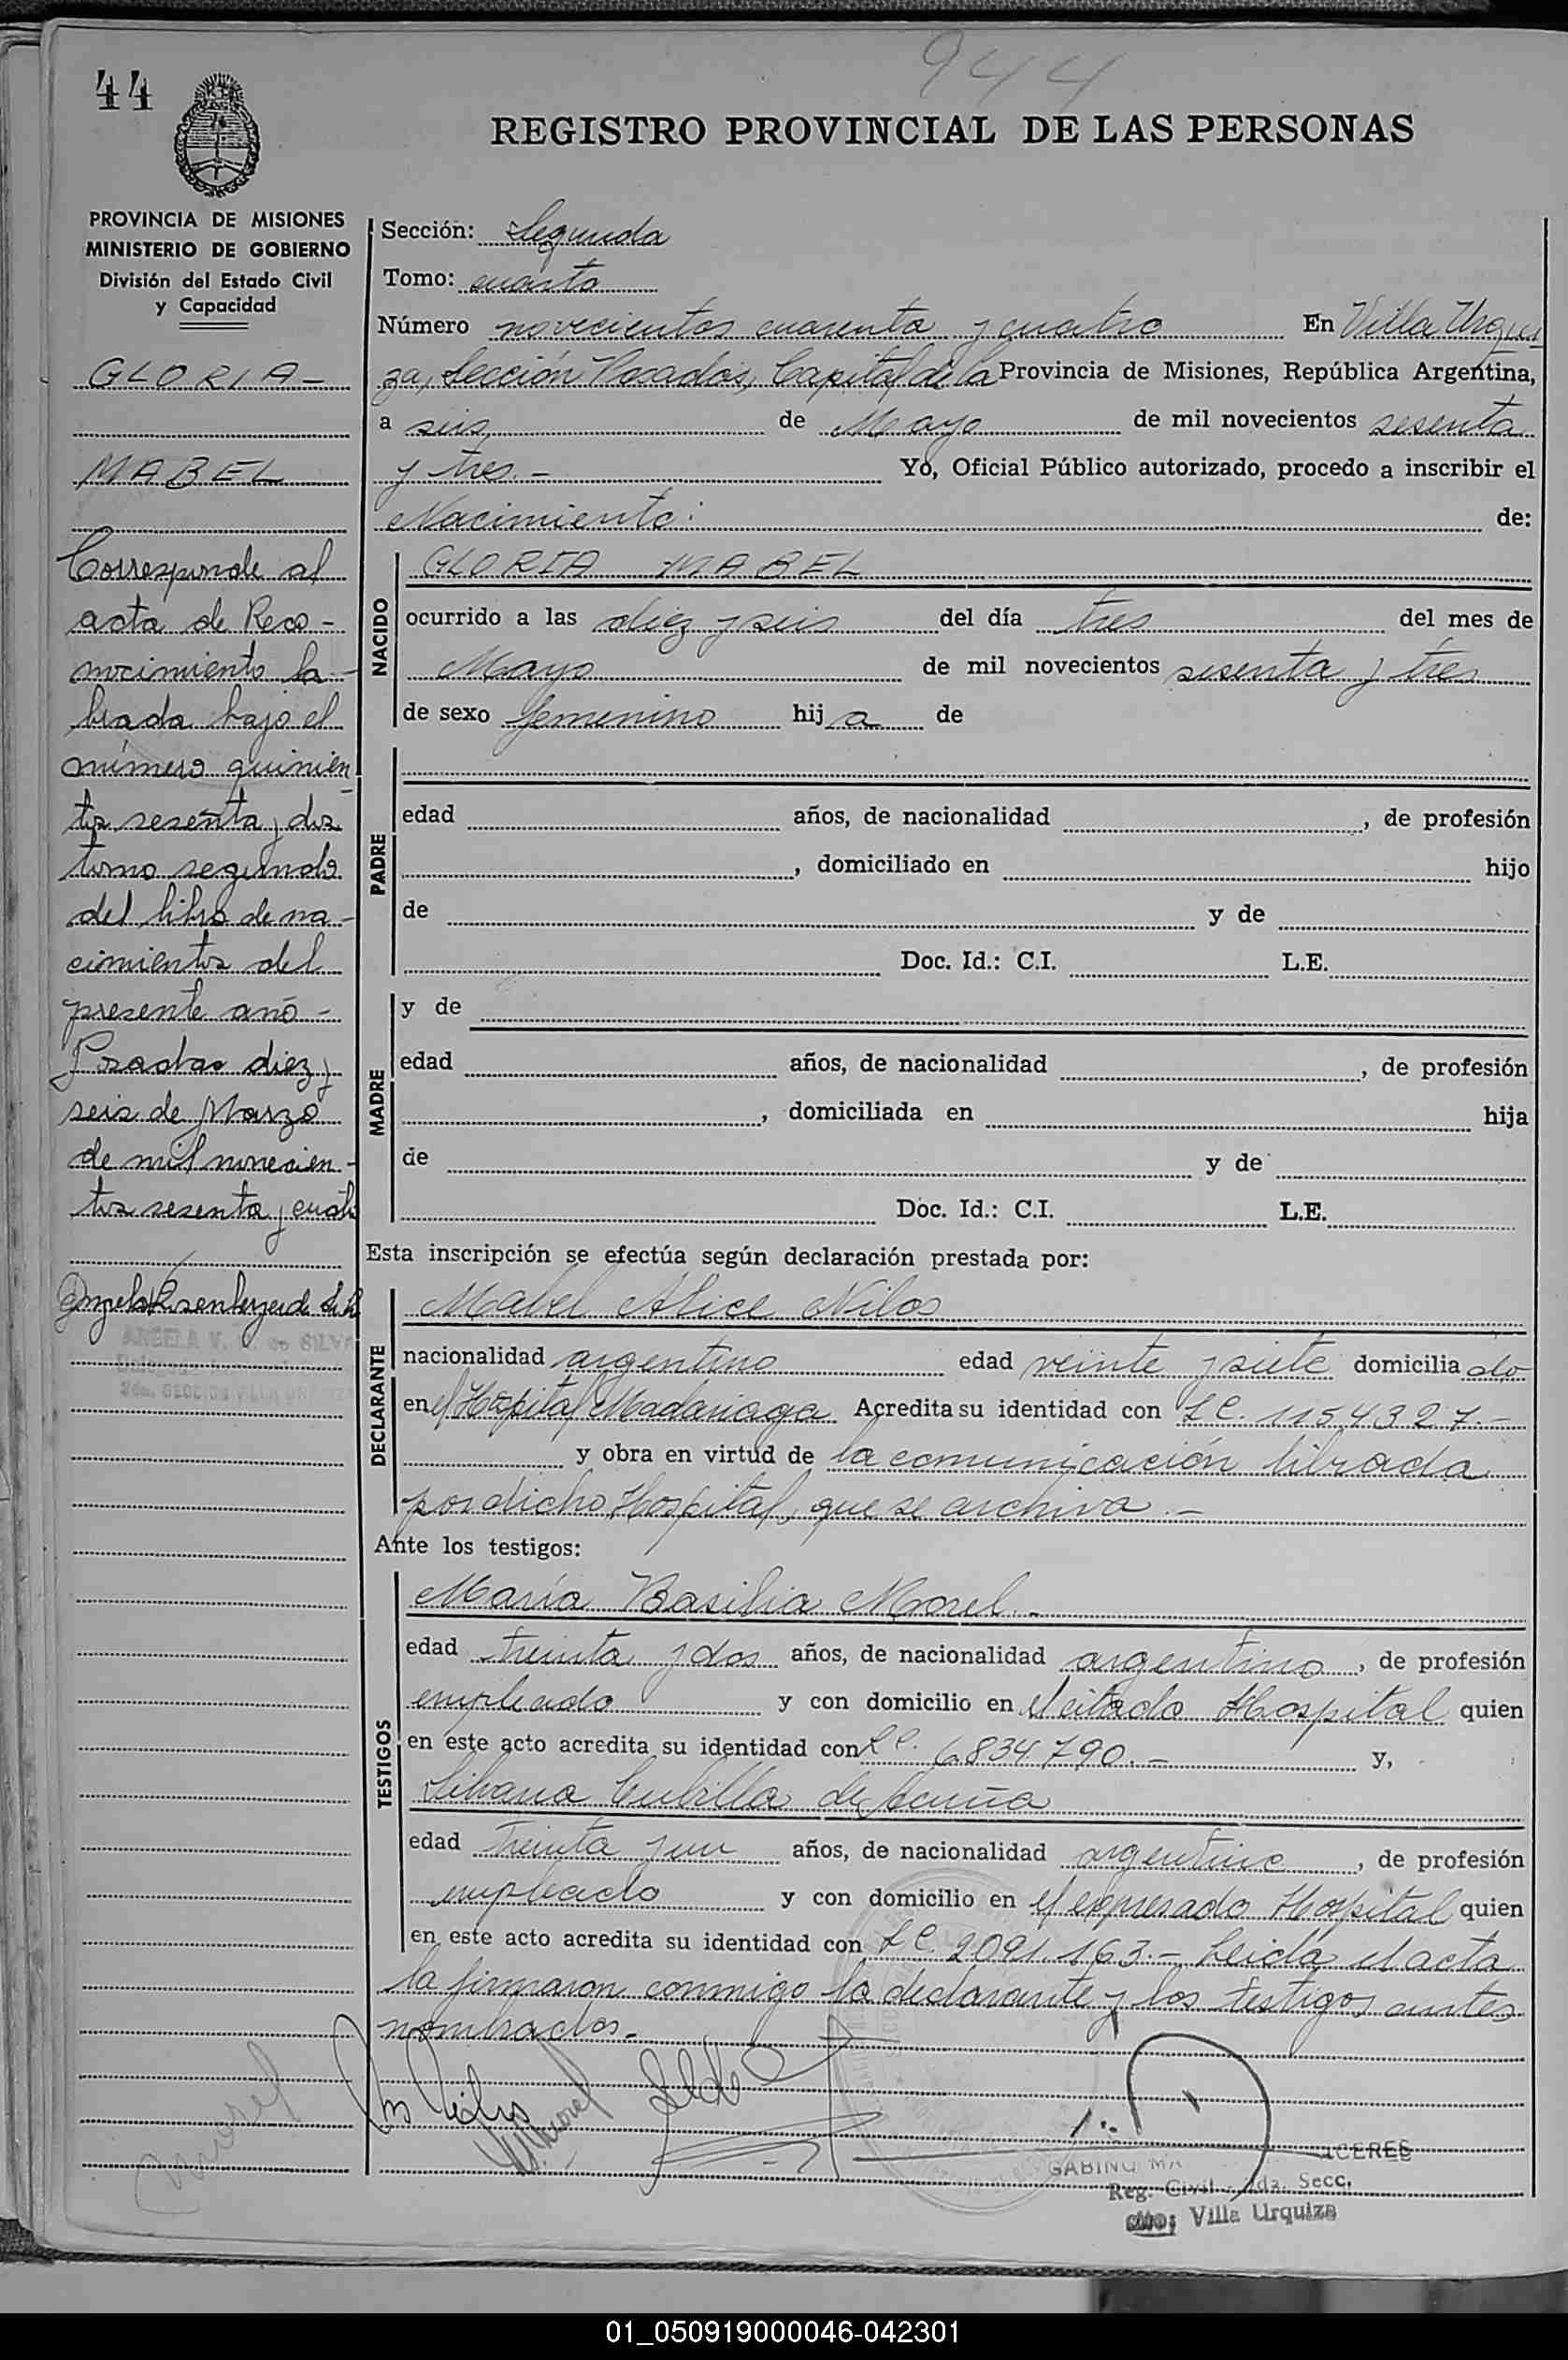 944
44
REGISTRO PROVINCIAL DE LAS PERSONAS
PROVINCIA DE MISIONES
MINISTERIO DE GOBIERNO
División del Estado Civil
y Capacidad
GLORIA -
MABEL
Corresponde al
acta de Reco-
nocimiento la-
brada bajo el
número quinien
tos sesenta y dos
tomo segundo
del libro de na-
cimientos del
presente año -
Posadas diez y
seis de Marzo
de mil novecien-
tos sesenta y cuatro
ANGELA V. de SILVA
Sección: Segunda
Tomo: cuarto
Número novecientos cuarenta y cuatro En Villa Urqui
za, Sección Posadas, Capital de la Provincia de Misiones, República Argentina,
a seis de Mayo de mil novecientos sesenta
y tres.- Yo, Oficial Público autorizado, procedo a inscribir el
Nacimiento: de:
NACIDO
GLORIA MABEL
ocurrido a las diez y seis del día tres del mes de
Mayo de mil novecientos sesenta y tres
de sexo femenino hija de
PADRE
edad años, de nacionalidad , de profesión
, domiciliado en hijo
de y de
Doc. Id.: C.I. L.E.
MADRE
y de
edad años, de nacionalidad , de profesión
, domiciliada en hija
de y de
Doc. Id.: C.I. L.E.
Esta inscripción se efectúa según declaración prestada por:
DECLARANTE
Mabel Alice Nilos
nacionalidad argentino edad veinte y siete domiciliado
en el Hospital Madariaga Acredita su identidad con LC. 1154327.-
y obra en virtud de la comunicación librada
por dicho Hospital, que se archiva.-
Ante los testigos:
TESTIGOS
María Basilia Morel.-
edad treinta y dos años, de nacionalidad argentino, de profesión
empleado y con domicilio en el citado Hospital quien
en este acto acredita su identidad con LC. 6.834.790.- y,
Silvana Cubilla de Acuña
edad treinta y un años, de nacionalidad argentino, de profesión
empleado y con domicilio en el expresado Hospital quien
en este acto acredita su identidad con LC. 2.091.163.- Leida el acta
la firmaron conmigo la declarante y los testigos antes
nombrados.-
GABINO MA CERES
Reg. Civil - 2da. Secc.
Villa Urquiza
01_050919000046-042301